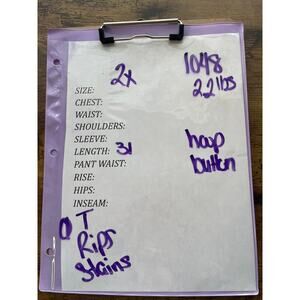 2x 1048
SIZE: 2.2 lbs
CHEST:
WAIST:
SHOULDERS:
SLEEVE: hoop
LENGTH: 31 button
PANT WAIST:
RISE:
HIPS:
INSEAM:
0 T
Rips
Stains